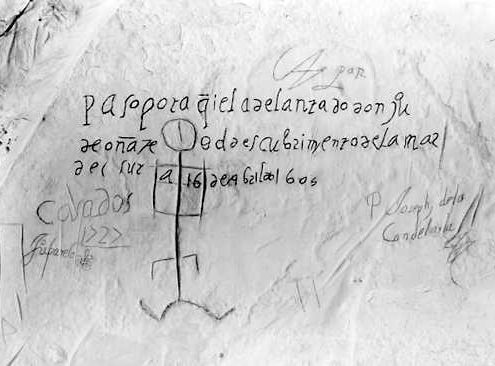 paso por aq̃i el adelantado don ju
de oñate al descubrimento de la mar
del sur a 16 de Abril do 1605
Casados
1727
P Joseph de la
Candelaria